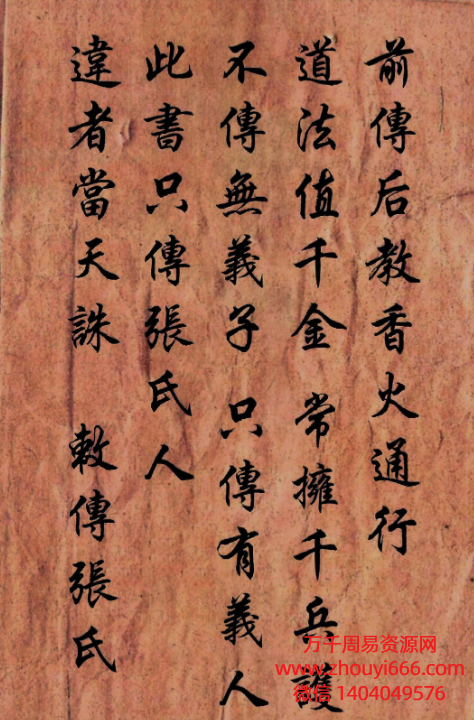 前傳后教香火通行
道法值千金 常擁千兵護
不傳無義子 只傳有義人
此書只傳張氏人
違者當天誅 敕傳張氏
万千周易资源网
www.zhouyi666.com
微信 1404049576